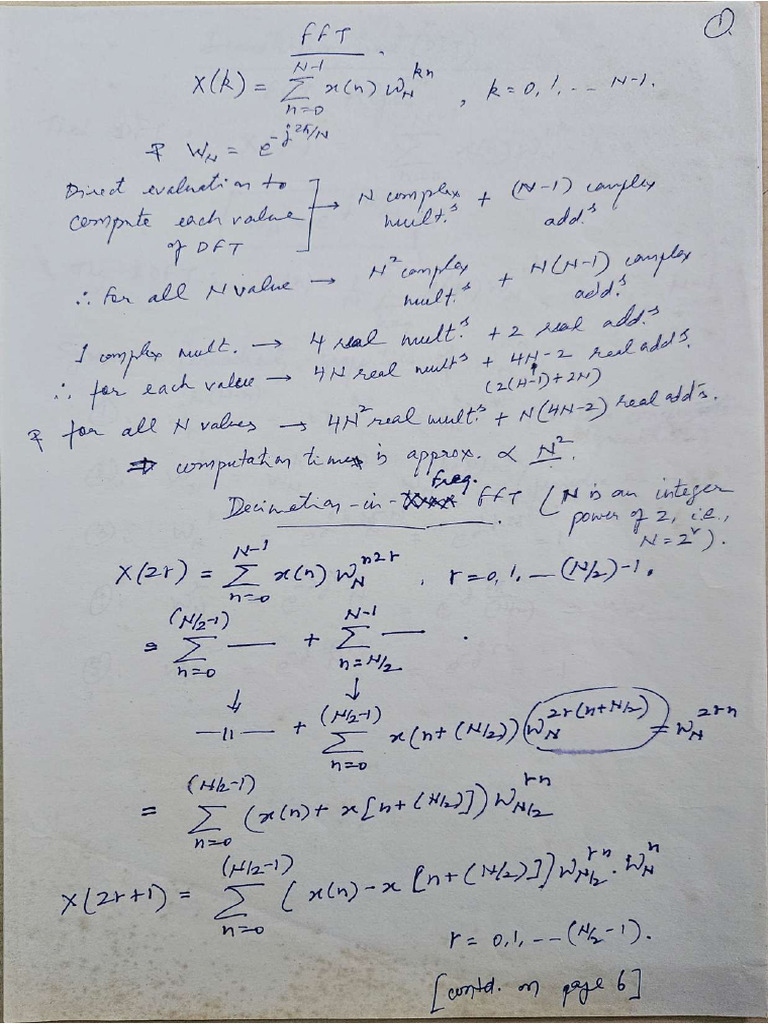 ①
FFT
X(k) = Σ_{n=0}^{N-1} x(n) W_N^{kn} , k = 0, 1, --- N-1.
& W_N = e^{-j2π/N}
Direct evaluation to compute each value of DFT ] → N complex mult.s + (N-1) complex add.s
∴ For all N value → N² complex mult.s + N(N-1) complex add.s
1 complex mult. → 4 real mult.s + 2 real add.s
∴ for each value → 4N real mult.s + 4N-2 real add.s.
(2(N-1)+2N)
& for all N values → 4N² real mult.s + N(4N-2) real add.s.
⇒ computation time is approx. ∝ N².
Decimation-in-Freq. FFT (N is an integer
power of 2, i.e.,
N = 2^r).
X(2r) = Σ_{n=0}^{N-1} x(n) W_N^{n2r} , r = 0, 1, --- (N/2)-1.
= Σ_{n=0}^{(N/2-1)} — + Σ_{n=N/2}^{N-1} — .
↓ ↓
—11— + Σ_{n=0}^{(N/2-1)} x(n+(N/2)) W_N^{2r(n+N/2)} = W_N^{2rn}
= Σ_{n=0}^{(N/2-1)} (x(n) + x[n+(N/2)]) W_{N/2}^{rn}
X(2r+1) = Σ_{n=0}^{(N/2-1)} (x(n) - x[n+(N/2)]) W_{N/2}^{rn} . W_N^n
r = 0, 1, --- (N/2-1).
[contd. on page 6]